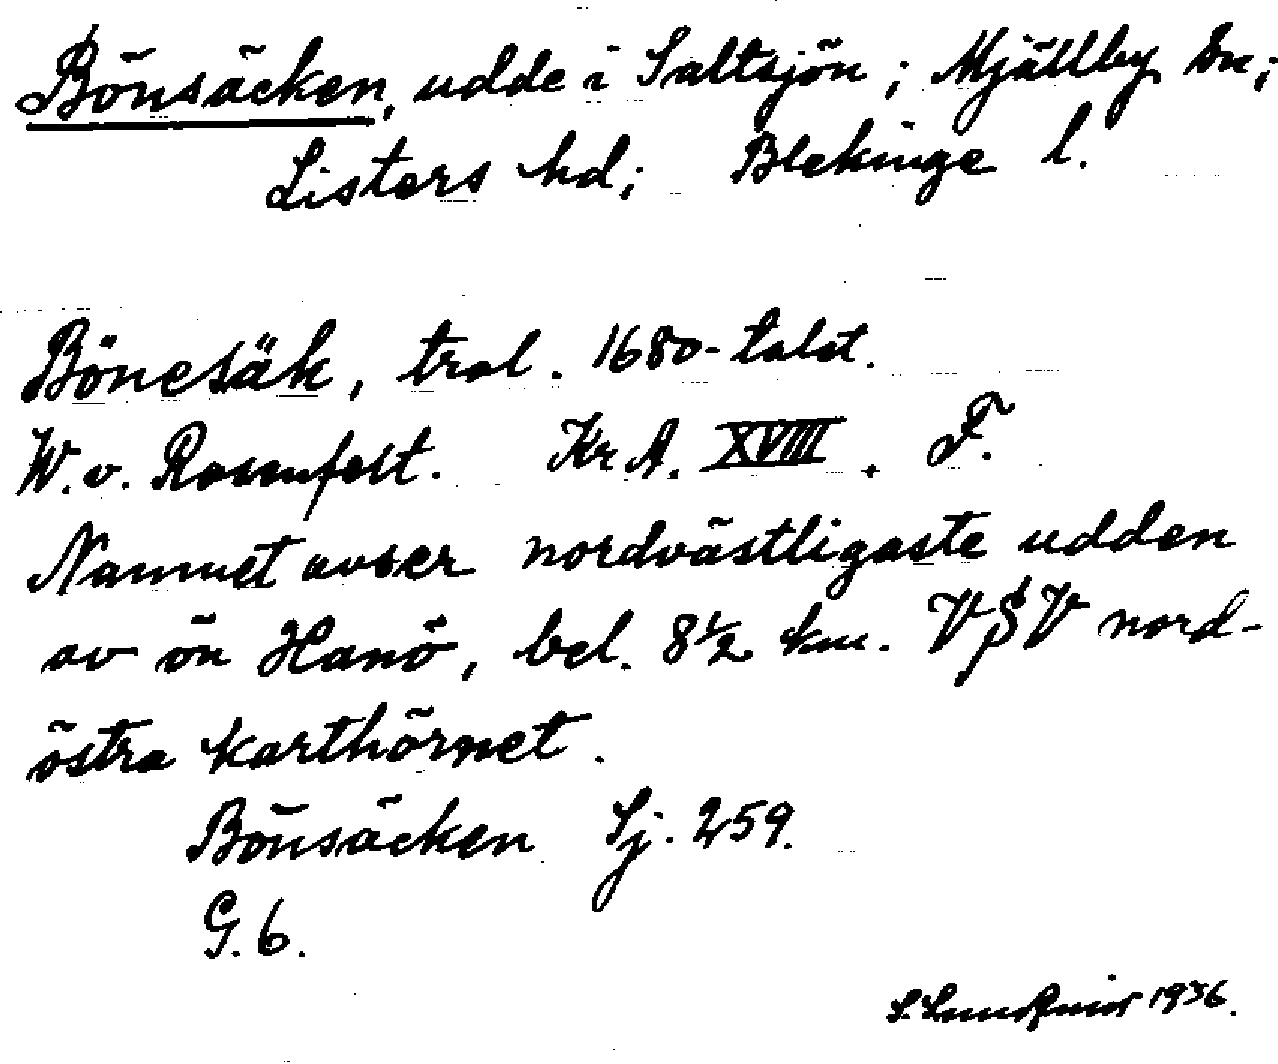 Bönsäcken, udde i Saltsjön; Mjällby sn;
Listers hd; Blekinge l.
Bönesäk, trol. 1680-talet.
W. v. Rosenfelt. Kr A. XVIII. F.
Namnet avser nordvästligaste udden
av ön Hanö, bel. 8½ km. VSV nord-
östra karthörnet.
Bönsäcken Sj. 259.
G. 6.
S. Lundqvist 1936.